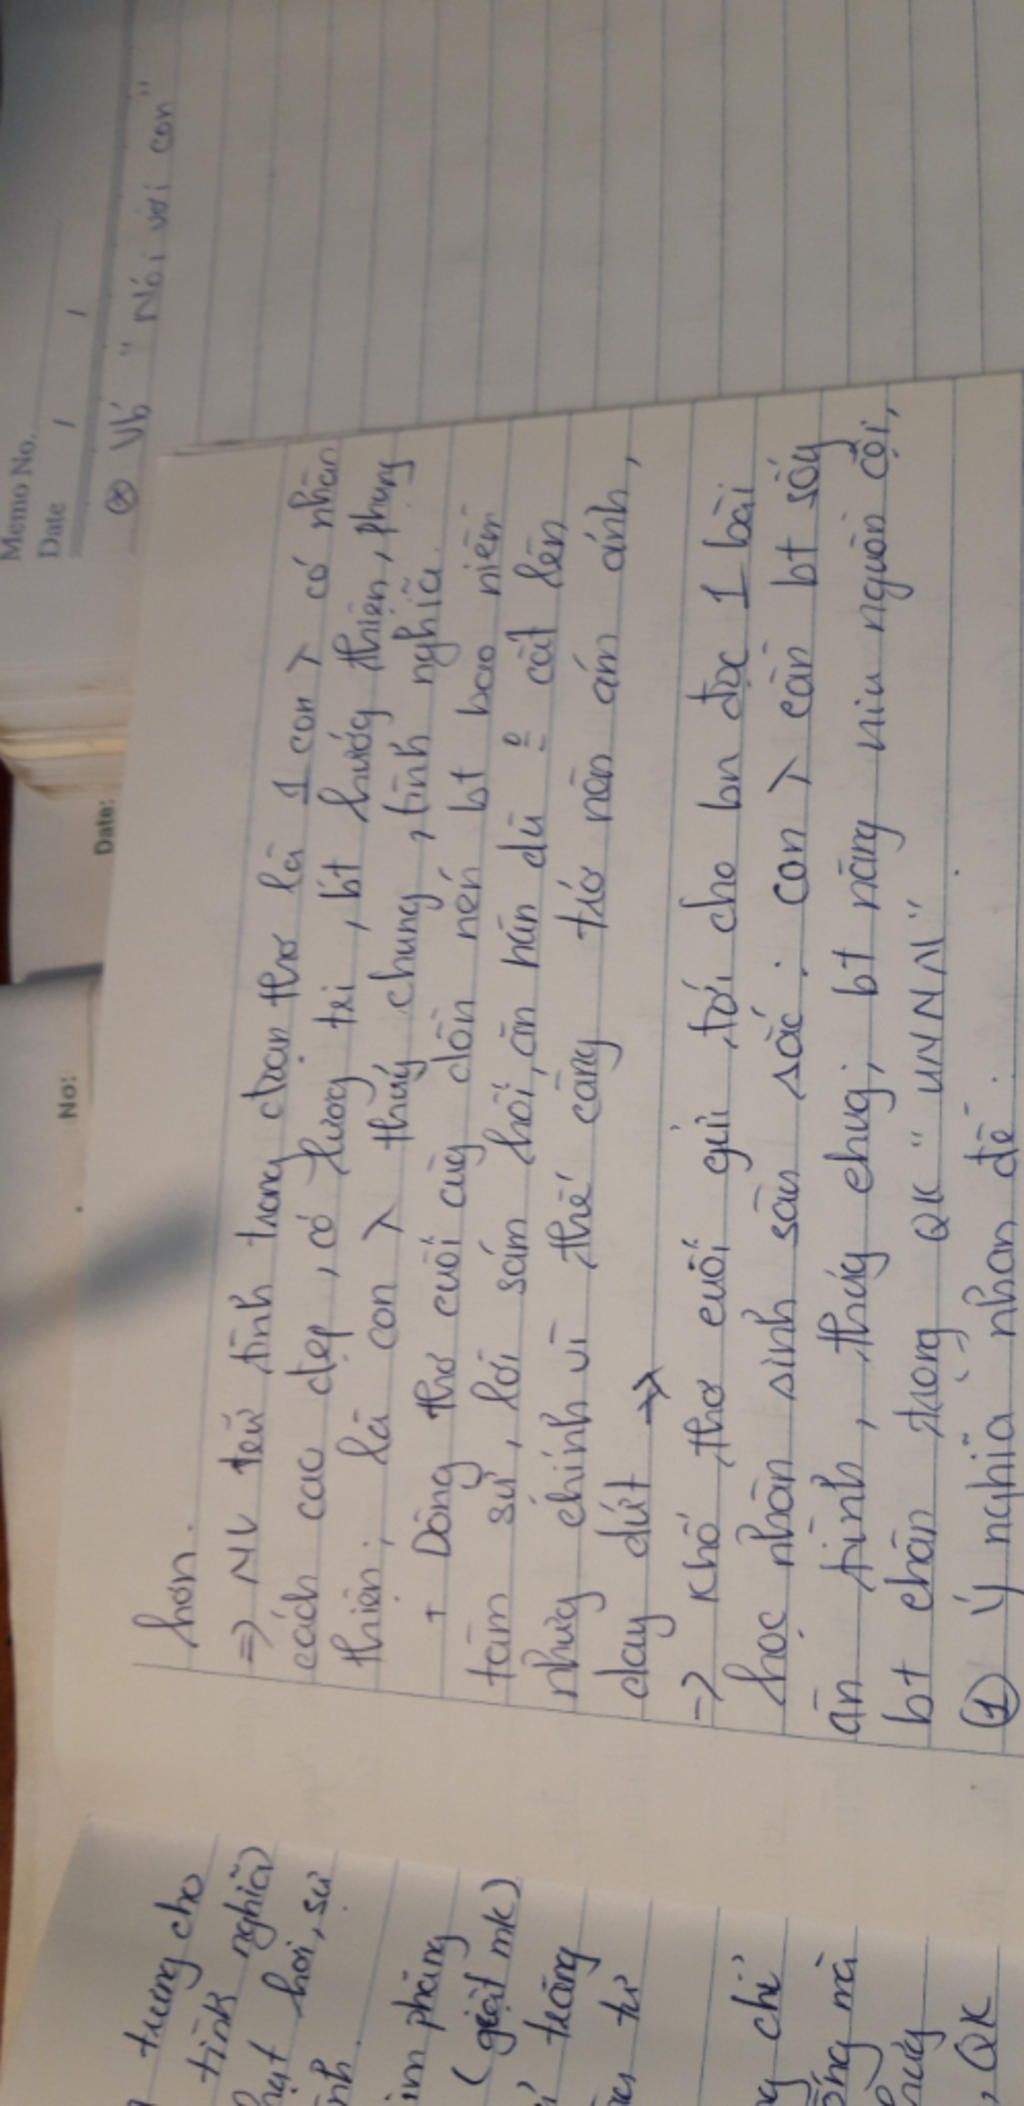 Memo No.
Date / /
⊗ Vb "Nói với con"
No:
Date:
hơn.
=> NV trữ tình trong đoạn thơ là 1 con λ có nhân
cách cao đẹp, có lương tri, bt hướng thiện, phụng
thiện; là con λ thuỷ chung, tình nghĩa.
+ Dòng thơ cuối cùng dồn nén bt bao niềm
tâm sự, lời sám hối, ăn năn dù cất lên
nhưng chính vì thế càng trở nên ám ảnh,
day dứt →
=> Khổ thơ cuối gửi tới cho bn đọc 1 bài
học nhân sinh sâu sắc: con λ cần bt sống
ân tình, thủy chug; bt nâng niu nguồn cội,
bt chân trong QK "UNNN"
① Ý nghĩa nhan đề:
trưng cho
tình nghĩa
hơi, sự
im phăng
(giật mk)
trăng
từ
chỉ
mà
, QK